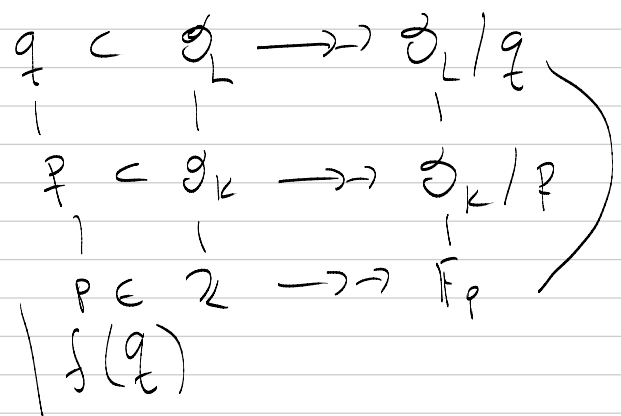 𝔮 ⊂ 𝒪_L ↠ 𝒪_L / 𝔮
𝔭 ⊂ 𝒪_K ↠ 𝒪_K / 𝔭
p ∈ ℤ ↠ 𝔽_p
f(𝔮)